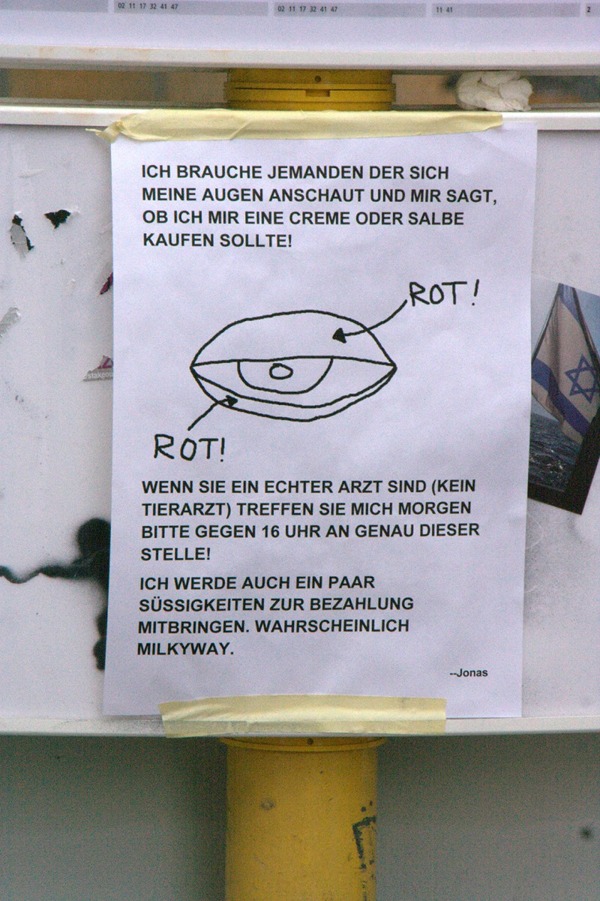 02 11 17 32 41 47
02 11 17 32 41 47
11 41
2
ICH BRAUCHE JEMANDEN DER SICH
MEINE AUGEN ANSCHAUT UND MIR SAGT,
OB ICH MIR EINE CREME ODER SALBE
KAUFEN SOLLTE!
ROT!
ROT!
WENN SIE EIN ECHTER ARZT SIND (KEIN
TIERARZT) TREFFEN SIE MICH MORGEN
BITTE GEGEN 16 UHR AN GENAU DIESER
STELLE!
ICH WERDE AUCH EIN PAAR
SÜSSIGKEITEN ZUR BEZAHLUNG
MITBRINGEN. WAHRSCHEINLICH
MILKYWAY.
--Jonas